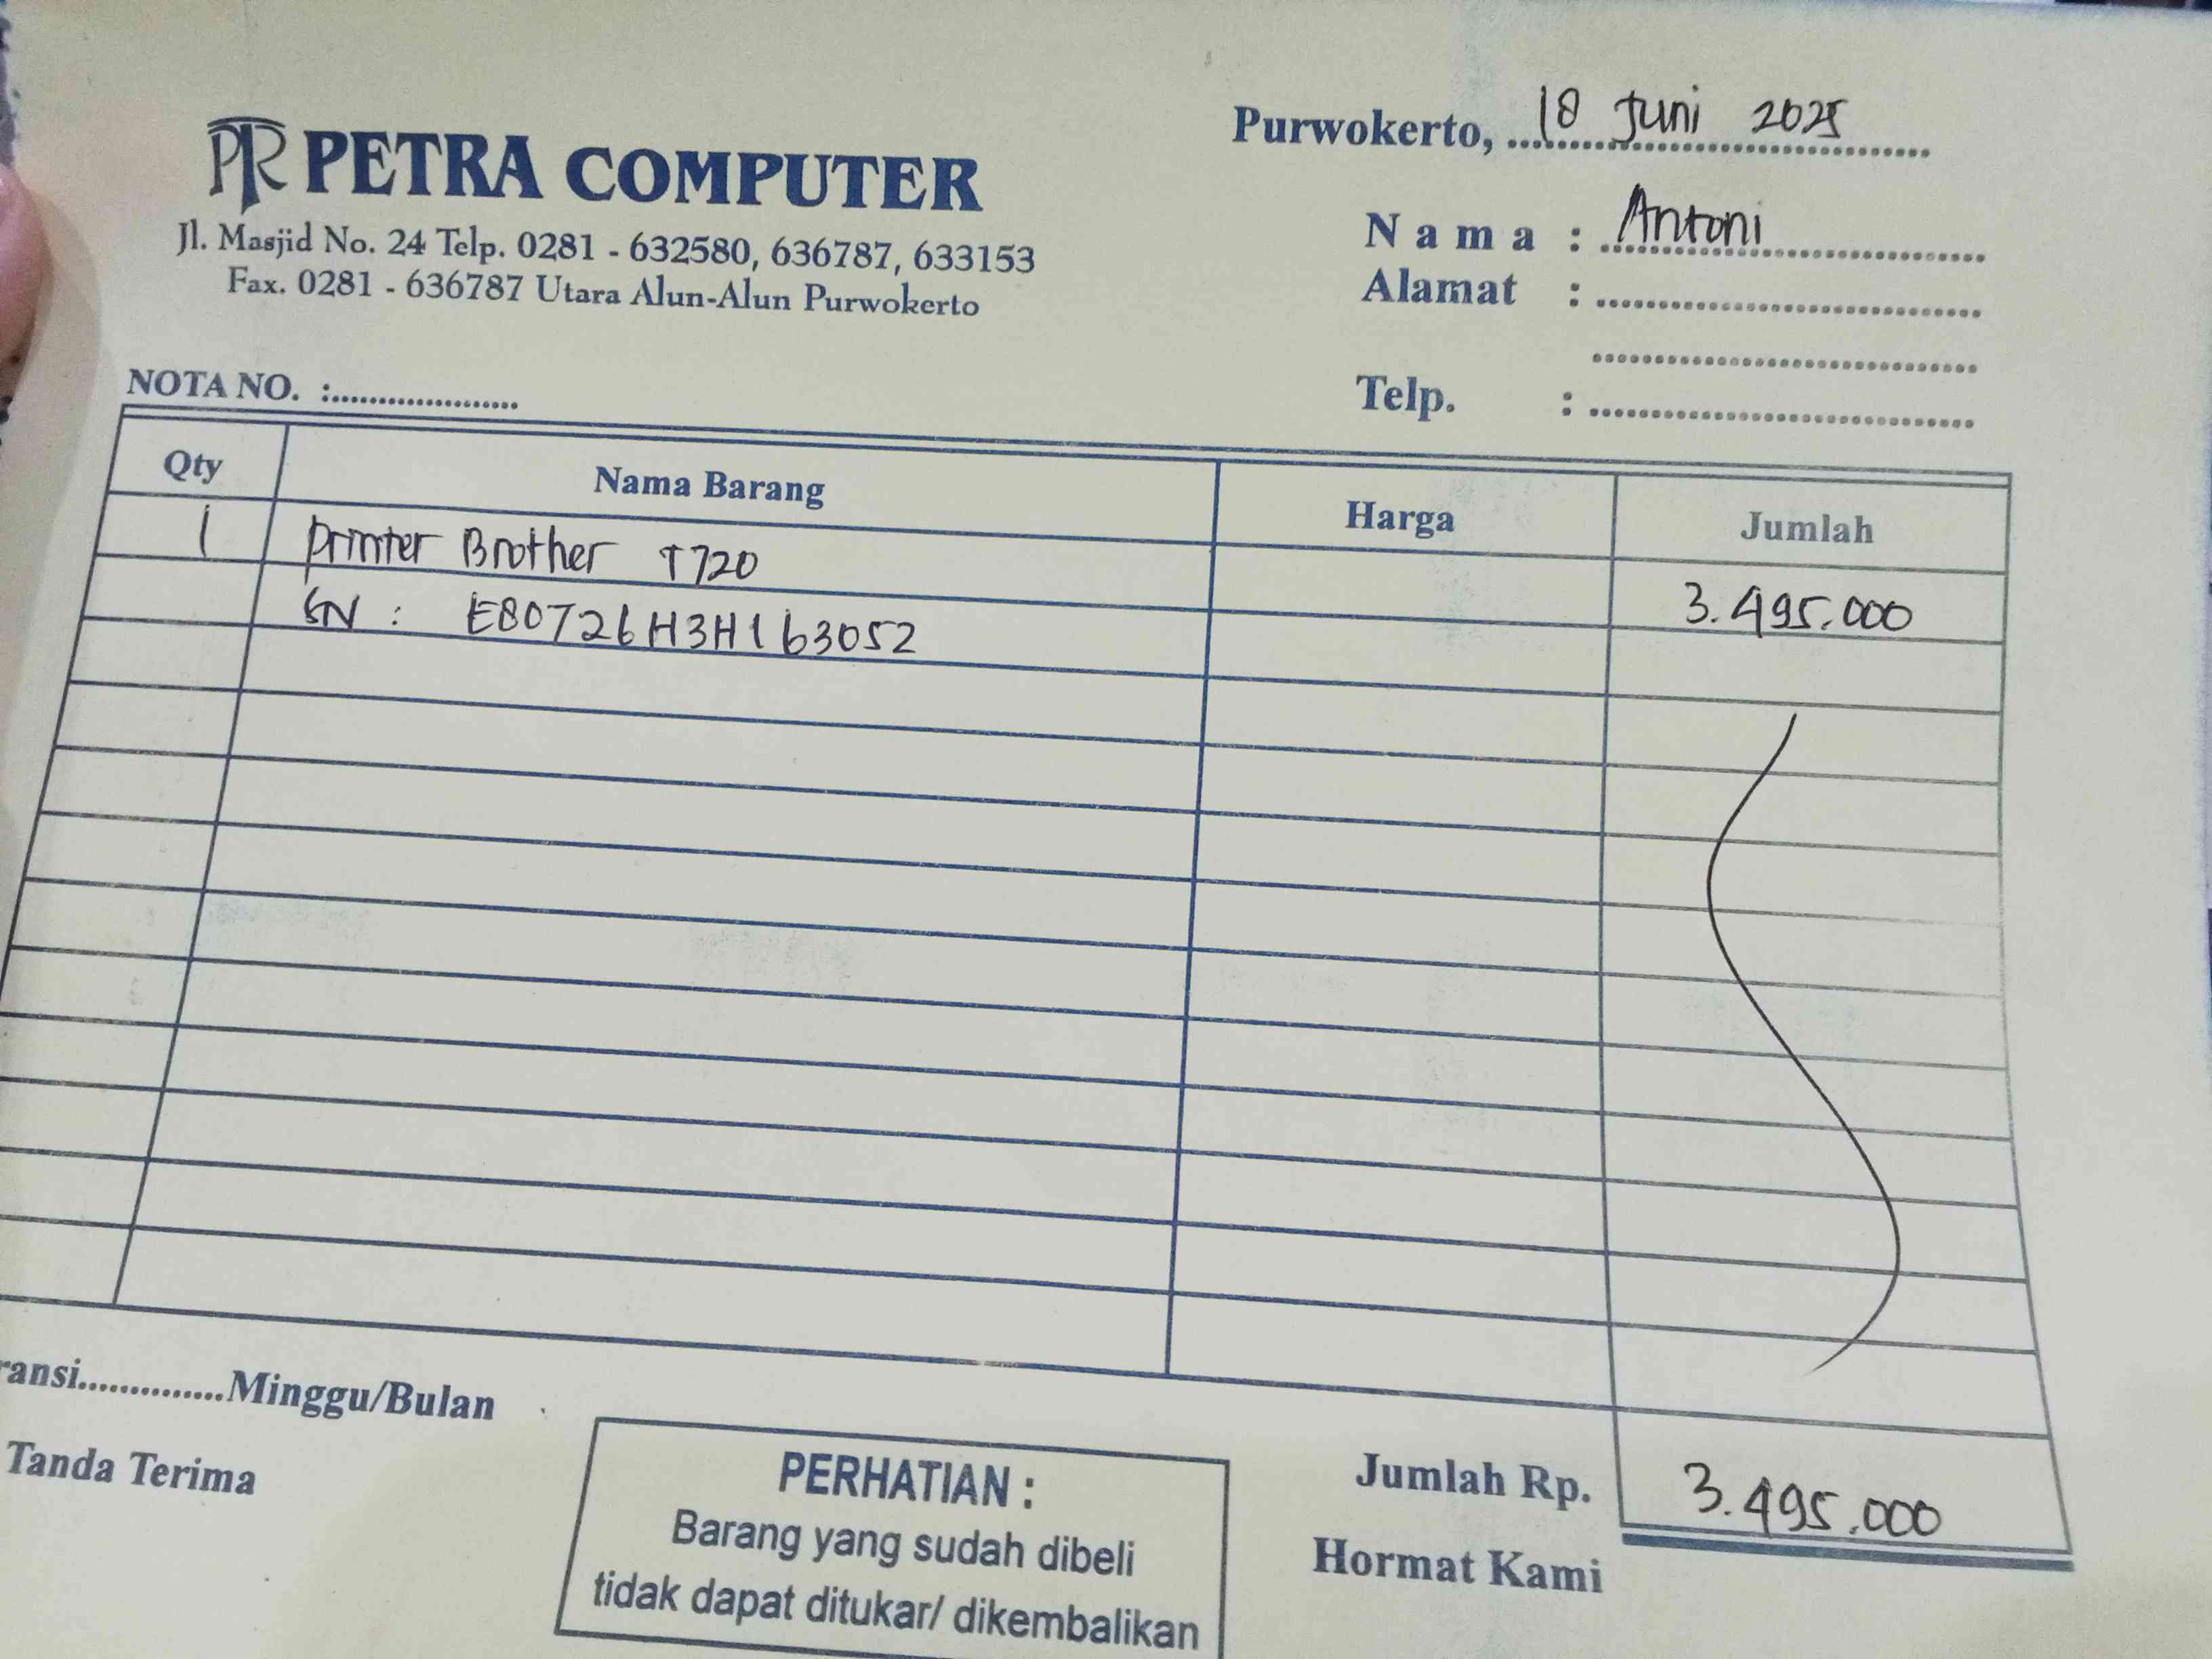 PR PETRA COMPUTER
Jl. Masjid No. 24 Telp. 0281 - 632580, 636787, 633153
Fax. 0281 - 636787 Utara Alun-Alun Purwokerto
Purwokerto, 18 Juni 2025
Nama : Antoni
Alamat :
Telp. :
NOTA NO. :
Qty Nama Barang Harga Jumlah
1 Printer Brother T720 3.495.000
SN : E80726H3H163052
ransi..............Minggu/Bulan
Tanda Terima
PERHATIAN :
Barang yang sudah dibeli
tidak dapat ditukar/ dikembalikan
Jumlah Rp. 3.495.000
Hormat Kami